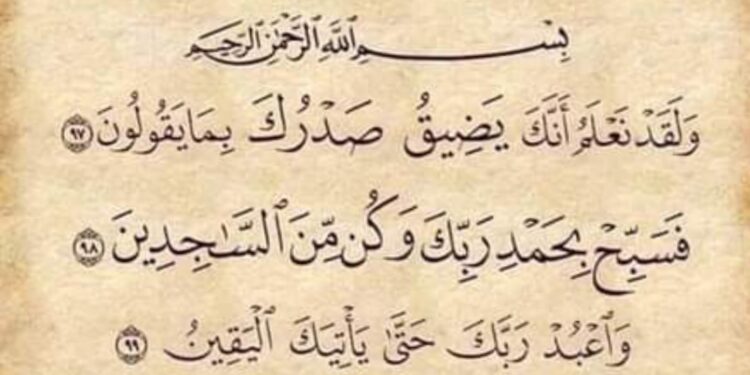 بِسْمِ ٱللَّهِ ٱلرَّحْمَٰنِ ٱلرَّحِيمِ
وَلَقَدْ نَعْلَمُ أَنَّكَ يَضِيقُ صَدْرُكَ بِمَا يَقُولُونَ ٩٧
فَسَبِّحْ بِحَمْدِ رَبِّكَ وَكُن مِّنَ ٱلسَّٰجِدِينَ ٩٨
وَٱعْبُدْ رَبَّكَ حَتَّىٰ يَأْتِيَكَ ٱلْيَقِينُ ٩٩